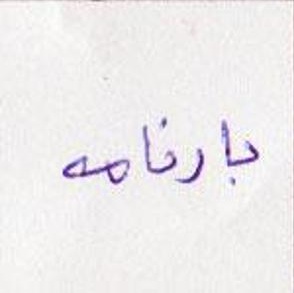 بارنامه